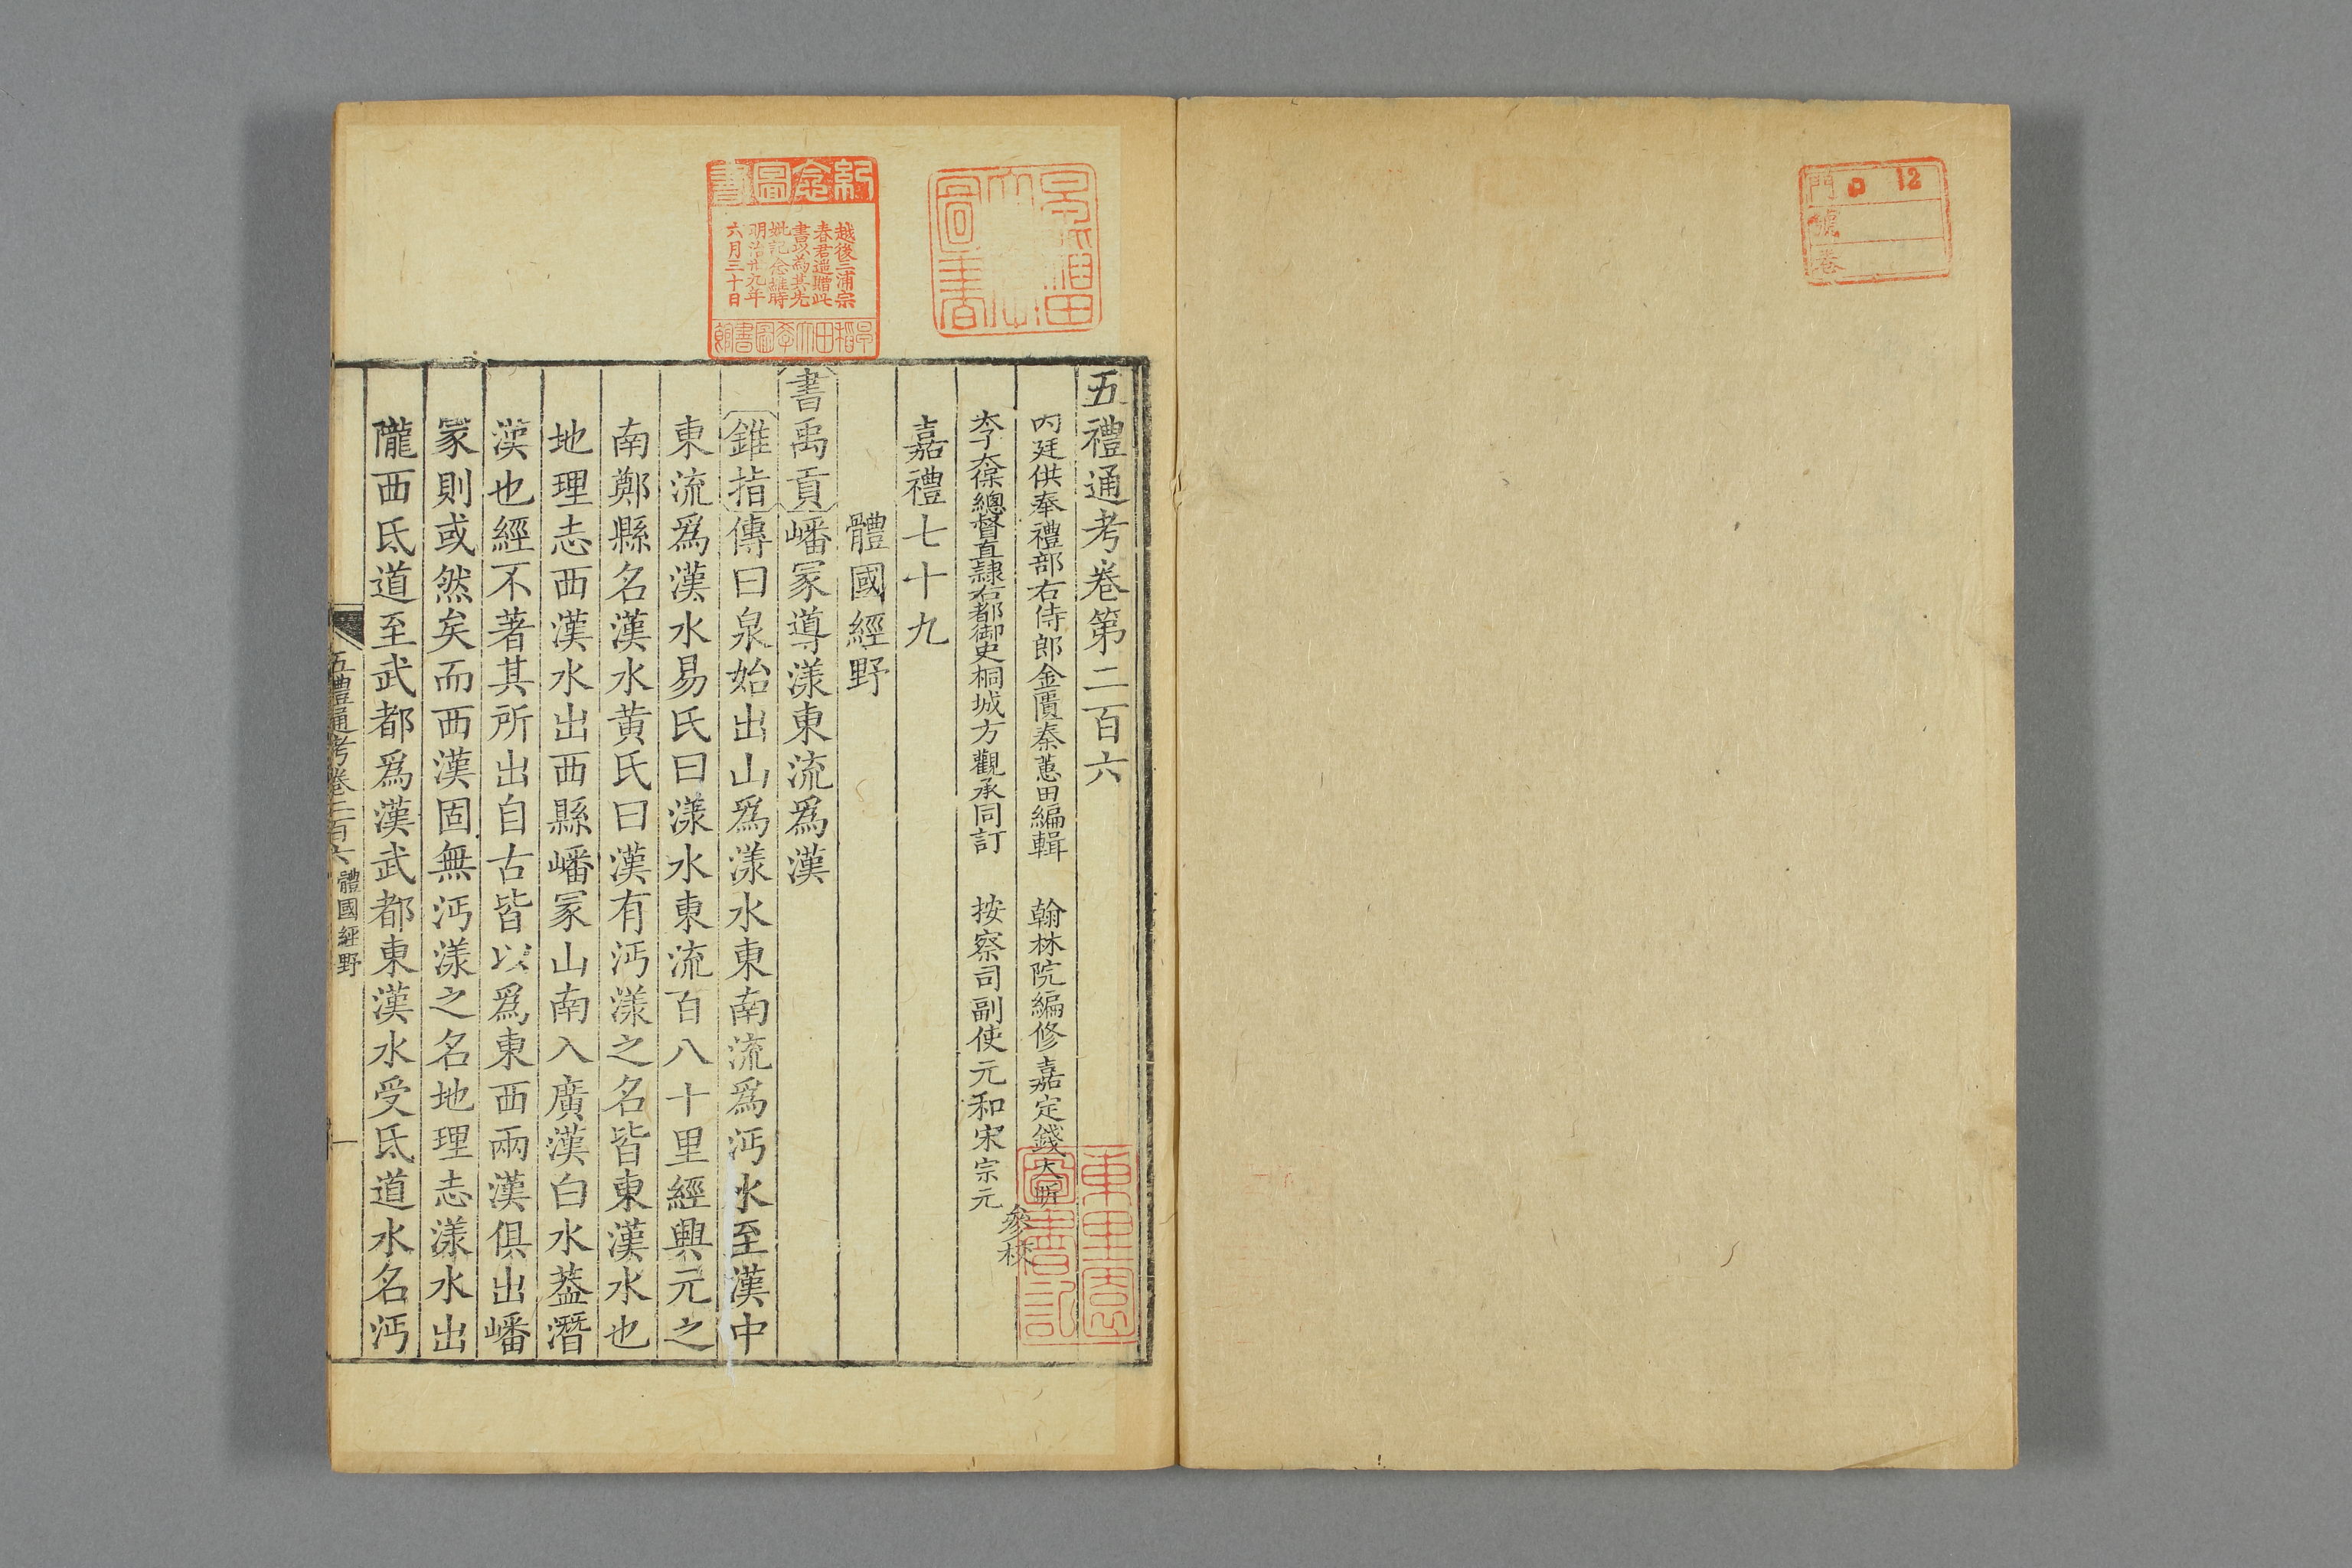 門 ロ 12
號
卷
早稲田大學圖書
紀念圖書
越後三浦宗
春君遥贈此
書以為其先
妣記念維時
明治廿九年
六月三十日
早稲田大學圖書館
五禮通考卷第二百六
内廷供奉禮部右侍郎金匱秦蕙田編輯 翰林院編修嘉定錢大昕
太子太保總督直隷右都御史桐城方觀承同訂 按察司副使元和宋宗元
參校
嘉禮七十九
體國經野
書禹貢嶓冢導漾東流爲漢
錐指傳曰泉始出山爲漾水東南流爲沔水至漢中
東流爲漢水易氏曰漾水東流百八十里經興元之
南鄭縣名漢水黄氏曰漢有沔漾之名皆東漢水也
地理志西漢水出西縣嶓冢山南入廣漢白水葢潛
漢也經不著其所出自古皆以爲東西兩漢俱出嶓
冢則或然矣而西漢固無沔漾之名地理志漾水出
隴西氐道至武都爲漢武都東漢水受氐道水名沔
五禮通考卷二百六 體國經野 一
圖書記